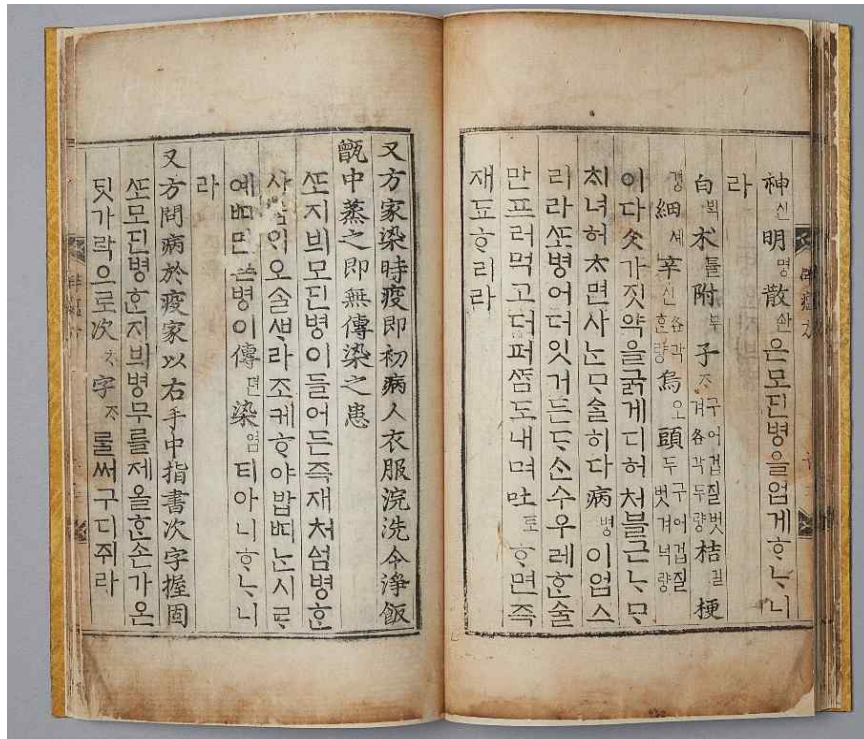 神신明명散산은모딘병을업게ᄒᆞᄂᆞ니
라
白ᄇᆡᆨ朮튤附부子ᄌᆞ구어겁질벗겨各각두량桔길梗
경細셰辛신各각ᄒᆞᆫ량烏오頭두구어겁질벗겨넉량
이다ᄉᆞᆺ가짓약을굵게디허처블근ᄂᆞᄆᆞ
치녀허ᄎᆞ면사ᄂᆞᆫᄆᆞᅀᆞᆯ히다病병이업스
리라ᄯᅩ병어더잇거든ᄃᆞᄉᆞᆫ수우레ᄒᆞᆫ술
만프러먹고더퍼ᄯᆞᆷ도내며吐토ᄒᆞ면즉
재됴ᄒᆞ리라
又方家染時疫即初病人衣服浣洗令淨飯
甑中蒸之即無傳染之患
ᄯᅩ지븨모딘병이들어든즉재처섬병ᄒᆞᆫ
사ᄅᆞᆷ의오ᄉᆞᆯᄲᆞ라조케ᄒᆞ야밥ᄠᅵᄂᆞᆫ시ᄅᆞ
예ᄠᅵ면병이傳뎐染염티아니ᄒᆞᄂᆞ니
라
又方問病於疫家以右手中指書次字握固
ᄯᅩ모딘병ᄒᆞᆫ지븨병무를제올ᄒᆞᆫ손가온
딋가락으로次ᄎᆞ字ᄌᆞᄅᆞᆯ써구디쥐라